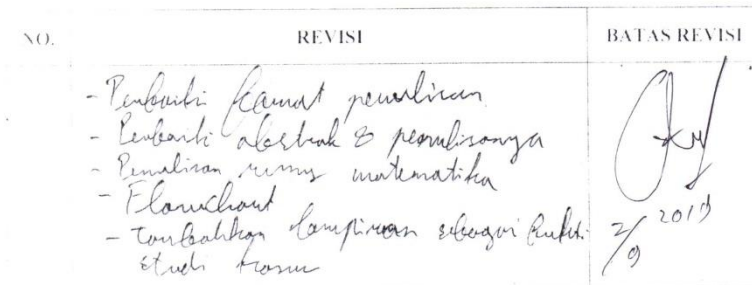 NO. REVISI BATAS REVISI
- Perbaiki format penulisan
- Perbaiki abstrak & penulisanya
- Penulisan rumus matematika
- Flowchart
- Tambahkan lampiran sebagai bukti
studi kasus
2/9 2019